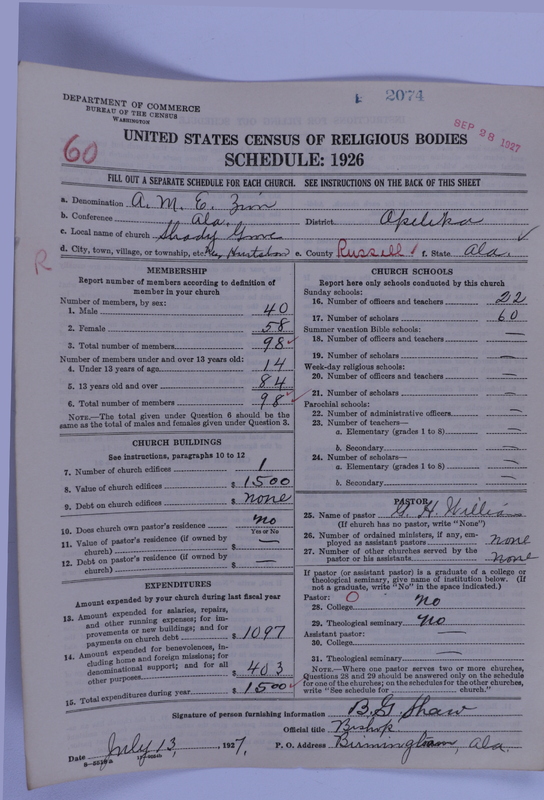 2074
DEPARTMENT OF COMMERCE
BUREAU OF THE CENSUS
WASHINGTON
SEP 28 1927
UNITED STATES CENSUS OF RELIGIOUS BODIES
60
SCHEDULE: 1926
FILL OUT A SEPARATE SCHEDULE FOR EACH CHURCH. SEE INSTRUCTIONS ON THE BACK OF THIS SHEET
a. Denomination A. M. E. Zion
b. Conference Ala. District Opelika
c. Local name of church Shady Grove
d. City, town, village, or township, etc. Hurtsboro e. County Russell f. State Ala.
R
MEMBERSHIP
Report number of members according to definition of member in your church
Number of members, by sex:
1. Male 40
2. Female 58
3. Total number of members 98
Number of members under and over 13 years old:
4. Under 13 years of age 14
5. 13 years old and over 84
6. Total number of members 98
NOTE.—The total given under Question 6 should be the
same as the total of males and females given under Question 3.
CHURCH BUILDINGS
See instructions, paragraphs 10 to 12
7. Number of church edifices 1
8. Value of church edifices $ 1500
9. Debt on church edifices $ none
10. Does church own pastor's residence no
Yes or No
11. Value of pastor's residence (if owned by
church) $ —
12. Debt on pastor's residence (if owned by
church) $ —
EXPENDITURES
Amount expended by your church during last fiscal year
13. Amount expended for salaries, repairs,
and other running expenses; for im-
provements or new buildings; and for
payments on church debt $ 1097
14. Amount expended for benevolences, in-
cluding home and foreign missions; for
denominational support; and for all
other purposes $ 403
15. Total expenditures during year $ 1500
CHURCH SCHOOLS
Report here only schools conducted by this church
Sunday schools:
16. Number of officers and teachers 22
17. Number of scholars 60
Summer vacation Bible schools:
18. Number of officers and teachers —
19. Number of scholars —
Week-day religious schools:
20. Number of officers and teachers —
21. Number of scholars —
Parochial schools:
22. Number of administrative officers —
23. Number of teachers—
a. Elementary (grades 1 to 8) —
b. Secondary —
24. Number of scholars—
a. Elementary (grades 1 to 8) —
b. Secondary —
PASTOR
25. Name of pastor G. H. Williams
(If church has no pastor, write "None")
26. Number of ordained ministers, if any, em-
ployed as assistant pastors none
27. Number of other churches served by the
pastor or his assistants none
If pastor (or assistant pastor) is a graduate of a college or
theological seminary, give name of institution below. (If
not a graduate, write "No" in the space indicated.)
Pastor: O
28. College No
29. Theological seminary No
Assistant pastor:
30. College —
31. Theological seminary —
NOTE.—Where one pastor serves two or more churches,
Questions 28 and 29 should be answered only on the schedule
for one of the churches; on the schedules for the other churches,
write "See schedule for church."
Signature of person furnishing information B. G. Shaw
Official title Bishop
Date July 13, 1927, P. O. Address Birmingham, Ala.